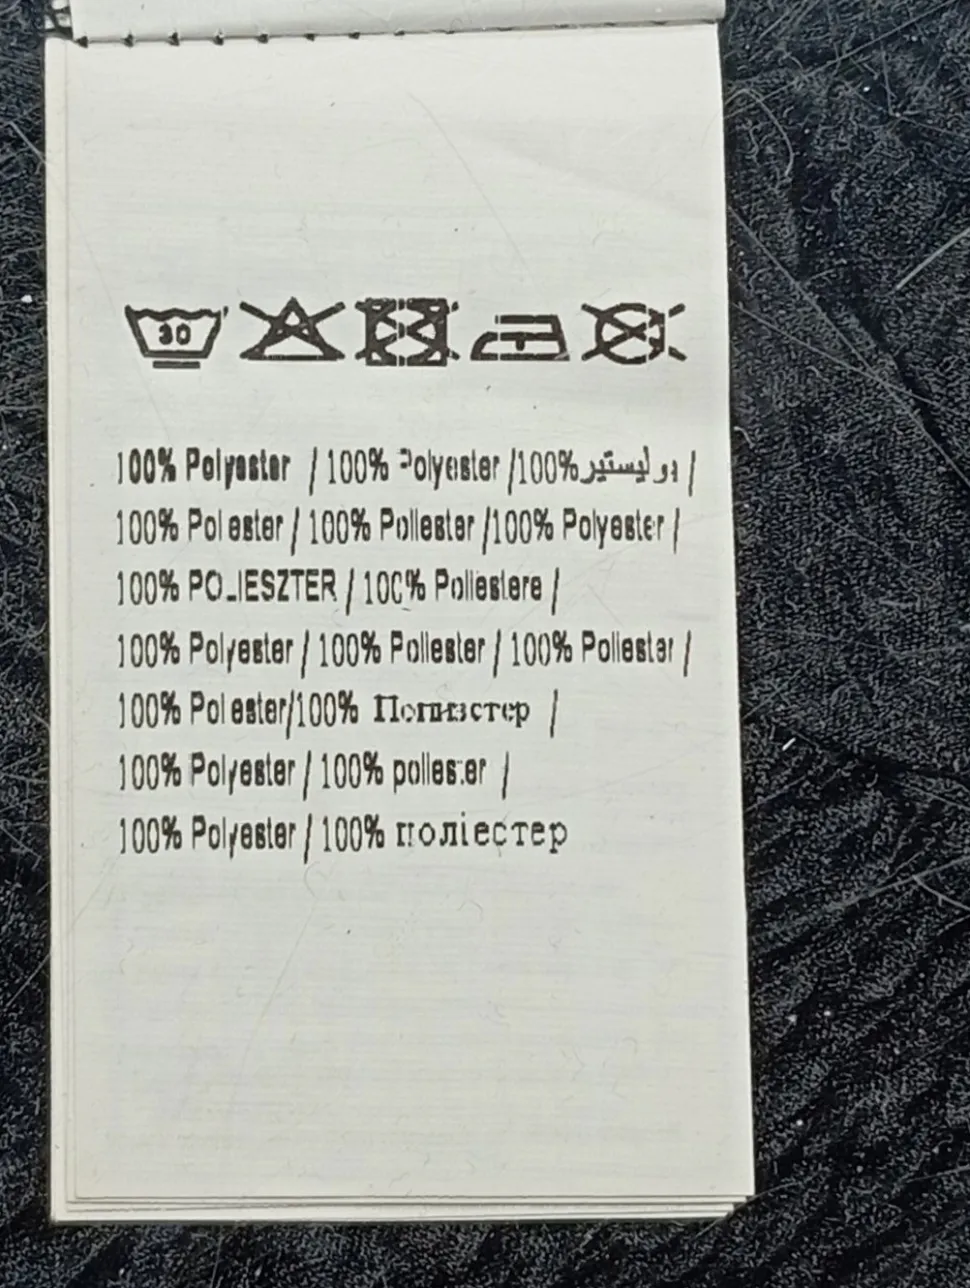 30
100% Polyester / 100% Polyester /100%بوليستير /
100% Poliester / 100% Poliester /100% Polyester /
100% POLIESZTER / 100% Poliestere /
100% Polyester / 100% Poliester / 100% Poliester /
100% Poliester/100% Полиэстер /
100% Polyester / 100% poliester /
100% Polyester / 100% поліестер